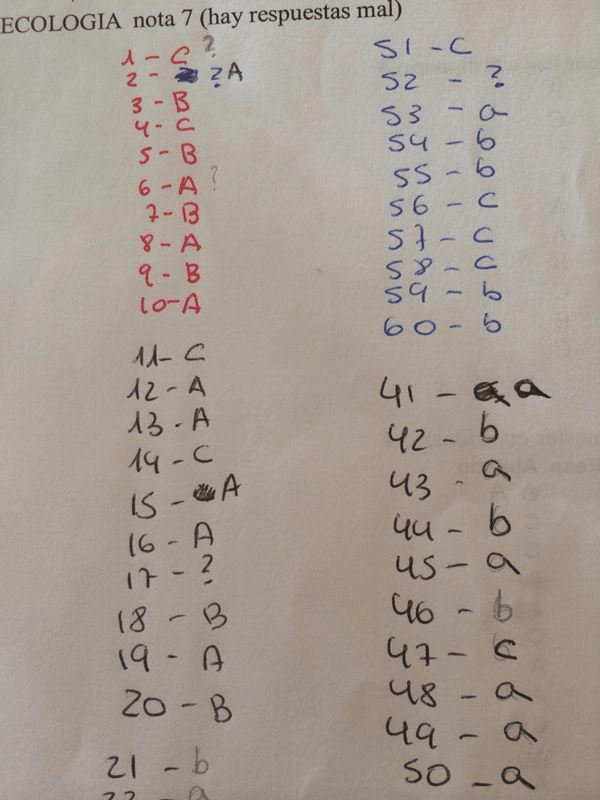 ECOLOGIA nota 7 (hay respuestas mal)
1 - C ?
2 - ? A
3 - B
4 - C
5 - B
6 - A ?
7 - B
8 - A
9 - B
10 - A
11 - C
12 - A
13 - A
14 - C
15 - A
16 - A
17 - ?
18 - B
19 - A
20 - B
21 - b
22 - a
51 - C
52 - ?
53 - a
54 - b
55 - b
56 - c
57 - c
58 - c
59 - b
60 - b
41 - a
42 - b
43 - a
44 - b
45 - a
46 - b
47 - c
48 - a
49 - a
50 - a